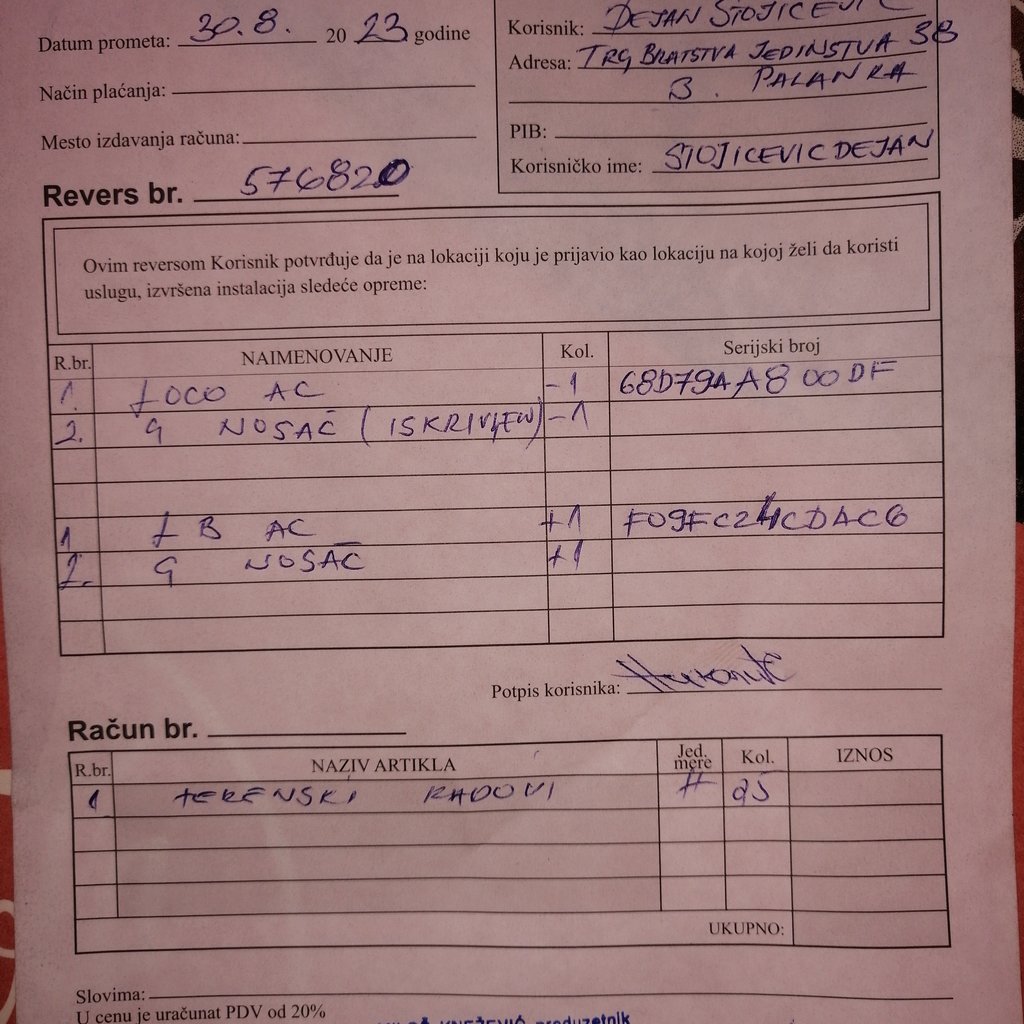 Datum prometa: 30.8. 20 23 godine
Način plaćanja:
Mesto izdavanja računa:
Korisnik: DEJAN STOJICEVIC
Adresa: TRG BRATSTVA JEDINSTVA 38
B. PALANKA
PIB:
Korisničko ime: STOJICEVICDEJAN
Revers br. 576820
Ovim reversom Korisnik potvrđuje da je na lokaciji koju je prijavio kao lokaciju na kojoj želi da koristi
uslugu, izvršena instalacija sledeće opreme:
R.br. NAIMENOVANJE Kol. Serijski broj
1. LOCO AC -1 68D79AA800DF
2. G NOSAČ (ISKRIVLJEN) -1
1 L B AC +1 F09FC24CDAC6
2. G NOSAČ +1
Potpis korisnika:
Račun br.
R.br. NAZIV ARTIKLA Jed. mere Kol. IZNOS
1 TERENSKI RADOVI H 05
UKUPNO:
Slovima:
U cenu je uračunat PDV od 20%
KNEŽEVIĆ preduzetnik